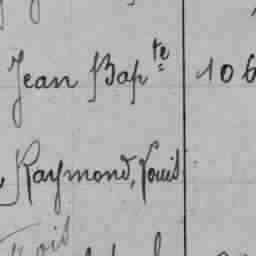 Jean Bapte 106
Raymond, Louis